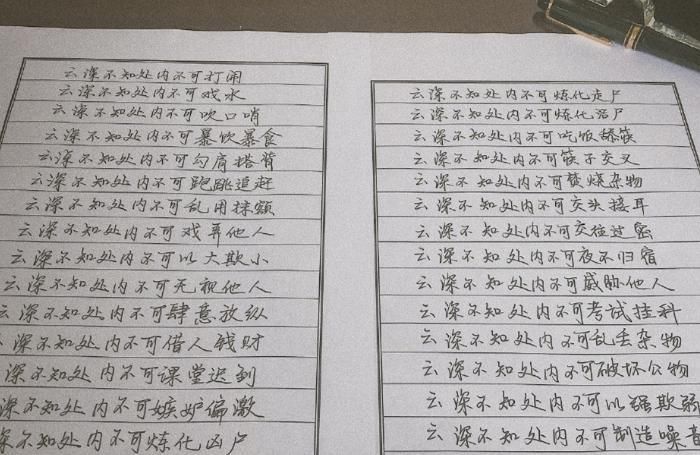 云深不知处内不可打闹
云深不知处内不可戏水
云深不知处内不可吹口哨
云深不知处内不可暴饮暴食
云深不知处内不可勾肩搭背
云深不知处内不可跑跳追赶
云深不知处内不可乱用抹额
云深不知处内不可戏弄他人
云深不知处内不可以大欺小
云深不知处内不可无视他人
云深不知处内不可肆意放纵
深不知处内不可借人钱财
深不知处内不可课堂迟到
深不知处内不可嫉妒偏激
深不知处内不可炼化凶尸
云深不知处内不可炼化走尸
云深不知处内不可炼化活尸
云深不知处内不可吃饭舔筷
云深不知处内不可筷子交叉
云深不知处内不可焚烧杂物
云深不知处内不可交头接耳
云深不知处内不可交往过密
云深不知处内不可夜不归宿
云深不知处内不可威胁他人
云深不知处内不可考试挂科
云深不知处内不可乱丢杂物
云深不知处内不可破坏公物
云深不知处内不可以强欺弱
云深不知处内不可制造噪音